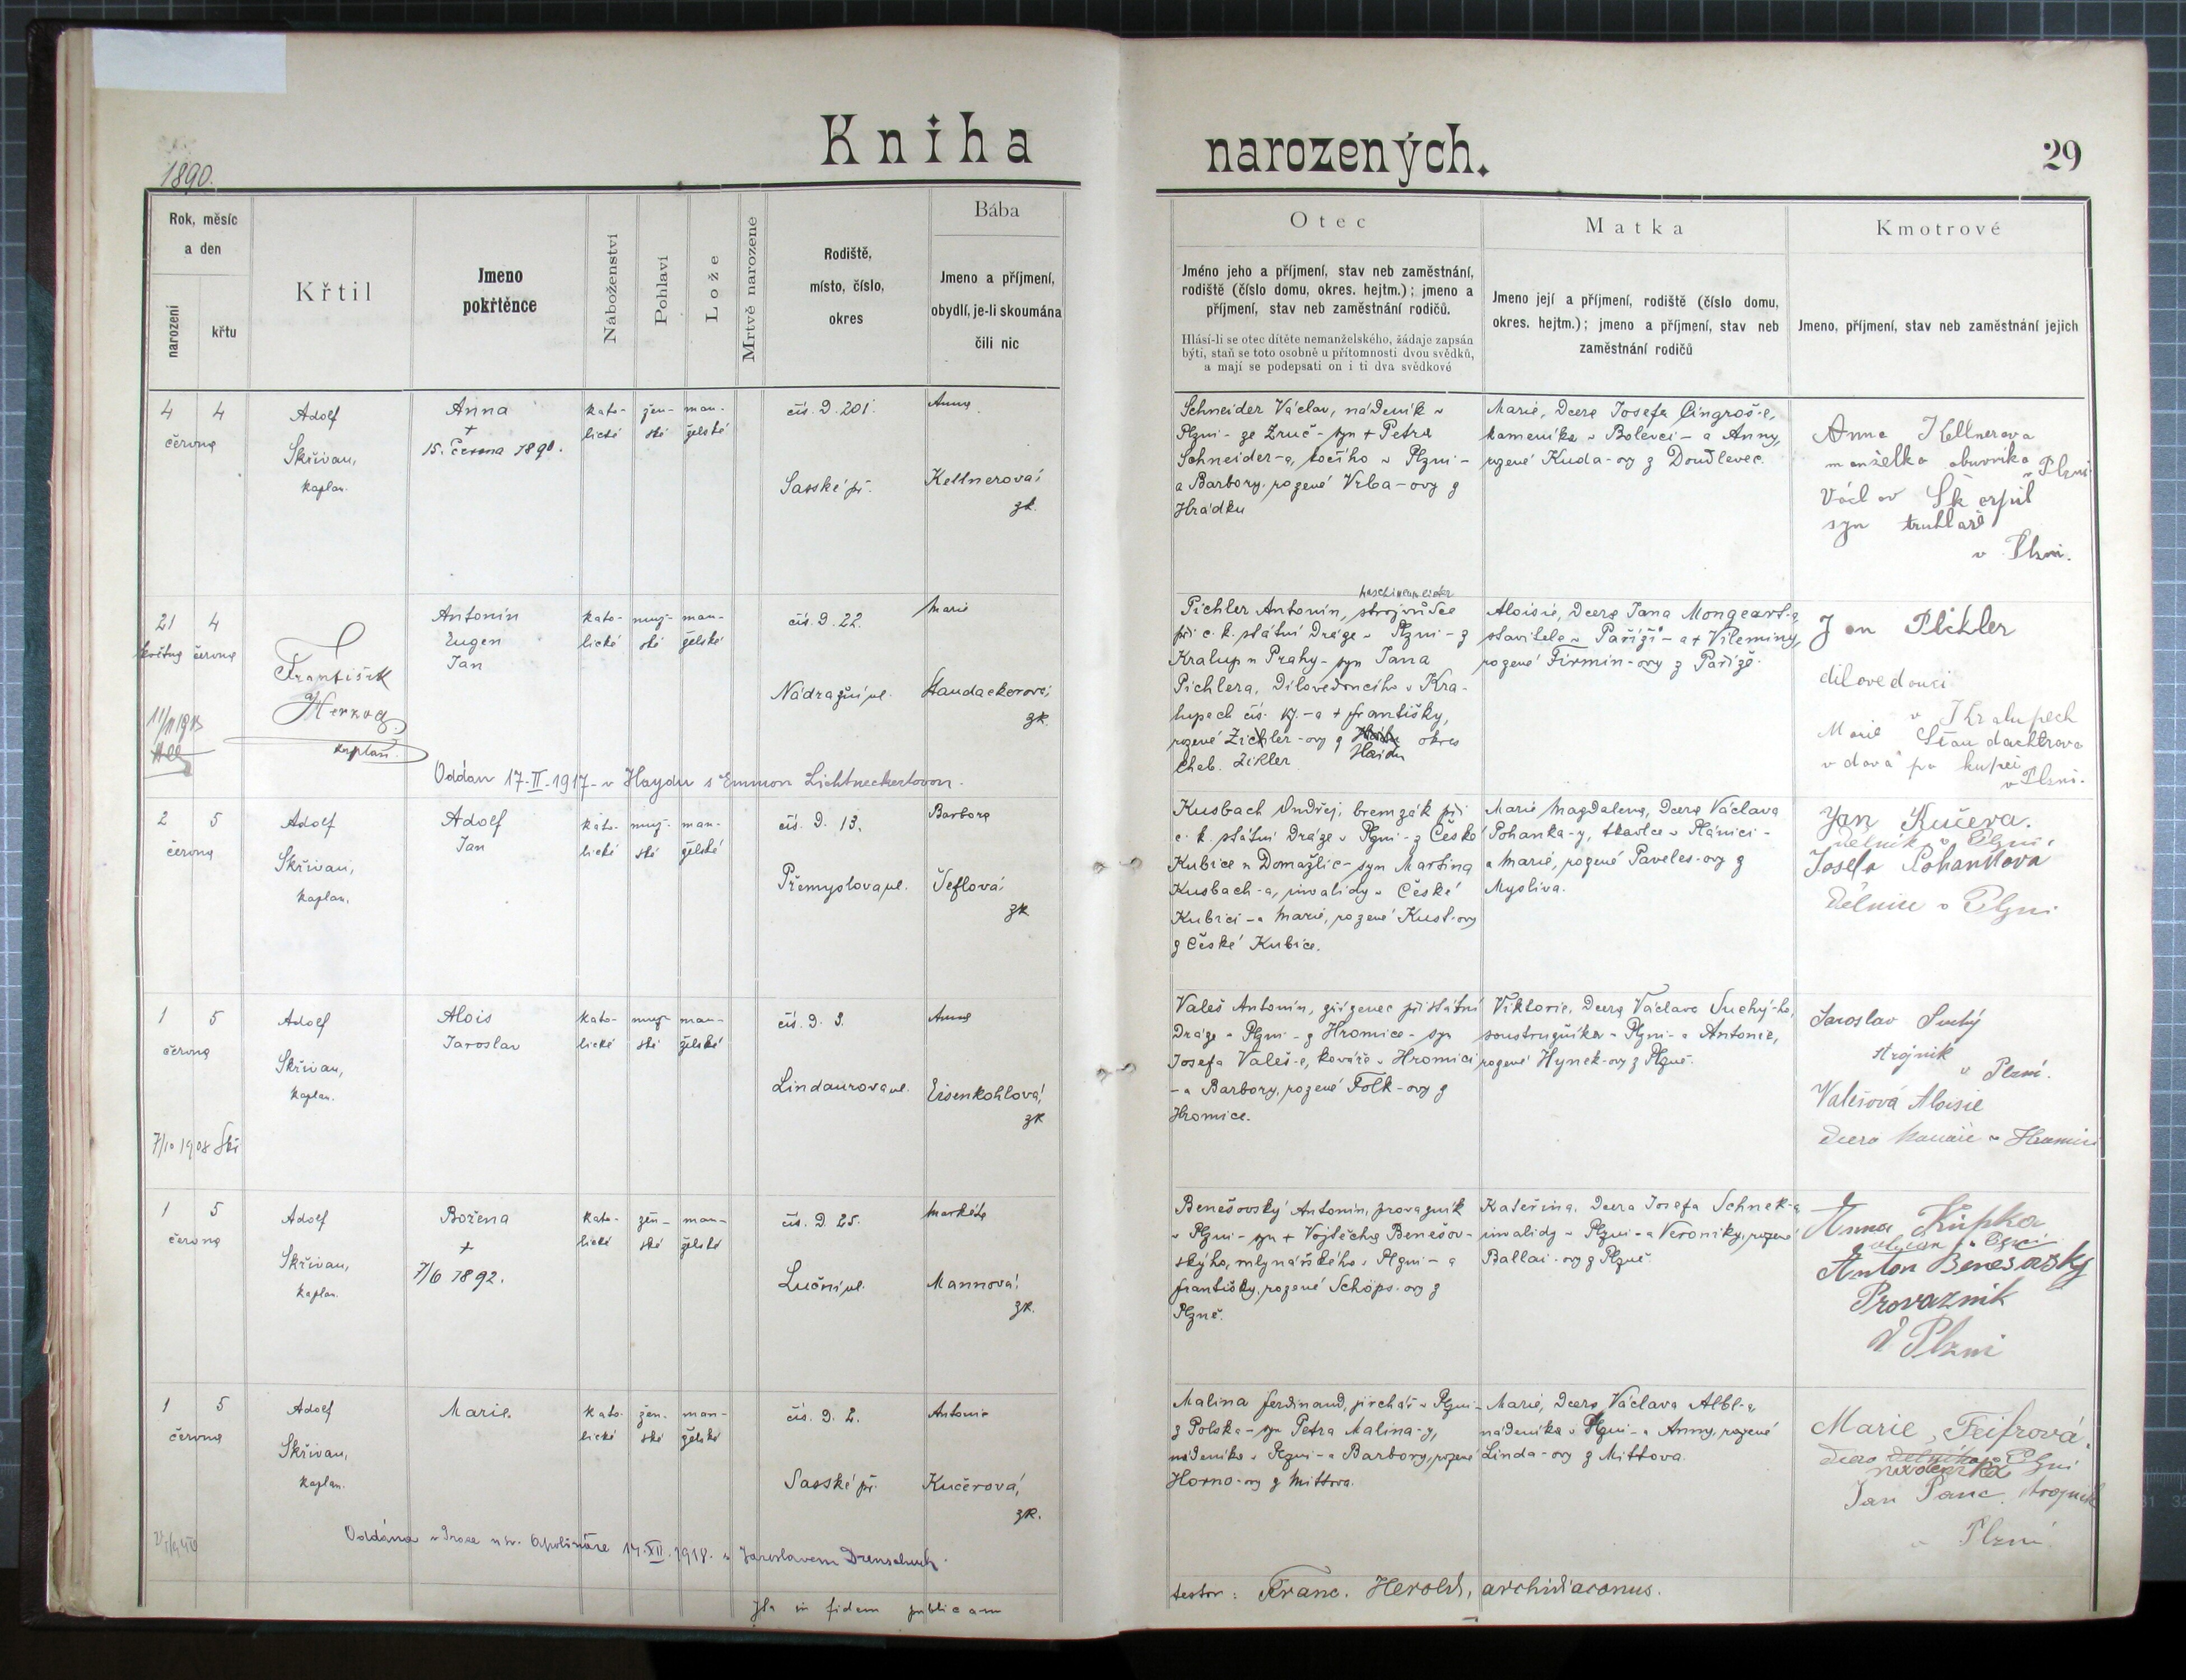 Kniha narozených.
29
1890.
Rok, měsíc
a den
narození
křtu
Křtil
Jmeno
pokřtěnce
Náboženství
Pohlaví
Lože
Mrtvě narozene
Rodiště,
místo, číslo,
okres
Bába
Jmeno a příjmení,
obydlí, je-li skoumána
čili nic
Otec
Jméno jeho a příjmení, stav neb zaměstnání,
rodiště (číslo domu, okres. hejtm.); jmeno a
příjmení, stav neb zaměstnání rodičů.
Hlásí-li se otec dítěte nemanželského, žádaje zapsán
býti, staň se toto osobně u přítomnosti dvou svědků,
a mají se podepsati on i ti dva svědkové
Matka
Jmeno její a příjmení, rodiště (číslo domu,
okres. hejtm.); jmeno a příjmení, stav neb
zaměstnání rodičů
Kmotrové
Jmeno, příjmení, stav neb zaměstnání jejich
4 4
června
Adolf
Skřivan,
kaplan.
Anna
+
15. června 1890.
kato-
lické
žen-
ské
man-
želské
čís. d. 201.
Sasské př.
Anna
Kellnerová;
zk.
Schneider Václav, nádeník v
Plzni - ze Zruč - syn + Petra
Schneider-a, točího v Plzni -
a Barbory, rozené Vrba-ovy z
Hrádku
Marie, dcera Josefa Cingroš-e,
kameníka v Bolevci - a Anny,
rozené Kuda-ovy z Doudlevec.
Anna Kellnerova
manželka obuvníka
v Plzni
Václav Škerpil
syn truhlaře
v Plzni.
21 4
května června
František
Herzog
kaplan.
Antonín
Eugen
Jan
kato-
lické
muž-
ské
man-
želské
čís. d. 22.
Nádražní ul.
Marie
Haudackerová;
zk.
Pichler Antonín, strojvůdce
při c. k. státní dráze v Plzni - z
Kralup u Prahy - syn Jana
Pichlera, dílovedoucího v Kra-
lupech čís. 17. - a + Františky,
rozené Zichler-ovy z Haidu okres
Cheb. Zikler
Aloisie, dcera Jana Mongeart-a
stavitele v Paříži - a + Vileminy,
rozené Firmin-ovy z Paříže.
Jan Pichler
dílovedoucí
v Kralupech
Marie Haudackerova
vdova po kupci
v Plzni.
Oddán 17-II-1917- v Haydu s Emmou Lichtneckertovou.
2 5
června
Adolf
Skřivan,
kaplan.
Adolf
Jan
kato-
lické
muž-
ské
man-
želské
čís. d. 13.
Přemyslova ul.
Barbora
Šeflová;
zk
Kusbach Ondřej, bremzák při
c. k. státní dráze v Plzni - z České
Kubice u Domažlic - syn Martina
Kusbach-a, invalidy v České
Kubici - a Marie, rozené Kust-ovy
z České Kubice.
Marie Magdalena, dcera Václava
Pohanka-y, tkavlce v Plánici -
a Marie, rozené Paveles-ovy z
Mysliva.
Jan Kučera.
dělník v Plzni.
Josefa Pohankova
dělnice v Plzni
1 5
června
Adolf
Skřivan,
kaplan.
7/10 1908
Alois
Jaroslav
kato-
lické
muž-
ské
man-
želské
čís. d. 3.
Lindaurova ul.
Anna
Eisenkohlová;
zk
Valeš Antonín, zřízenec při státní
dráze v Plzni - z Hromice - syn
Josefa Valeš-e, kováře v Hromici
- a Barbory, rozené Folk-ovy z
Hromice.
Viktorie, dcera Václava Suchý-ho,
soustružníka v Plzni - a Antonie,
rozené Hynek-ovy z Plzně.
Jaroslav Suchý
strojník
v Plzni.
Valešová Aloisie
dcera kováře v Hromici
1 5
června
Adolf
Skřivan,
kaplan.
Božena
+
7/6 1892.
kato-
lické
žen-
ské
man-
želské
čís. d. 25.
Luční ul.
Markéta
Mannová;
zk.
Benešovský Antonín, provazník
v Plzni - syn + Vojtěcha Benešov-
ského, mlynářského v Plzni - a
Františky, rozené Schöps-ovy z
Plzně.
Kateřina, dcera Josefa Schnek-a
invalidy v Plzni - a Veroniky, rozené
Ballai-ovy z Plzně.
Anna Kupka
Anton Benesovsky
Provaznik
v Plzni
1 5
června
Adolf
Skřivan,
kaplan.
Marie.
kato-
lické
žen-
ské
man-
želské
čís. d. 2.
Sasské př.
Antonie
Kučerová,
zk.
Malina Ferdinand, jirchář v Plzni -
z Polska - syn Petra Malina-y,
nádeníka v Plzni - a Barbory, rozené
Horno-ovy z Mittova.
Marie, dcera Václava Albl-a,
nádeníka v Plzni - a Anny, rozené
Linda-ovy z Mittova.
Marie Feifrová.
dcera dělníka v Plzni
nádeníka
Jan Panc. strojník
v Plzni.
Oddána v Praze u sv. Apolináře 14.XII.1918. s Jaroslavem Drenschuh.
Ita in fidem publicam
testor: Franc. Herold, archidiaconus.